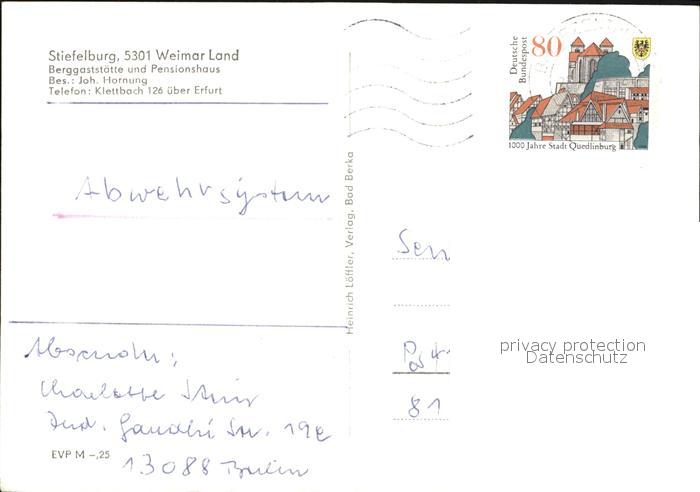 Stiefelburg, 5301 Weimar Land
Berggaststätte und Pensionshaus
Bes.: Joh. Hornung
Telefon: Klettbach 126 über Erfurt
Abwehrsystem
Absender:
Charlotte
Ind. Gandhi Str. 19c
13088 Berlin
EVP M –,25
Heinrich Löffler, Verlag, Bad Berka
Deutsche
Bundespost
80
1000 Jahre Stadt Quedlinburg
Sen
81
privacy protection
Datenschutz